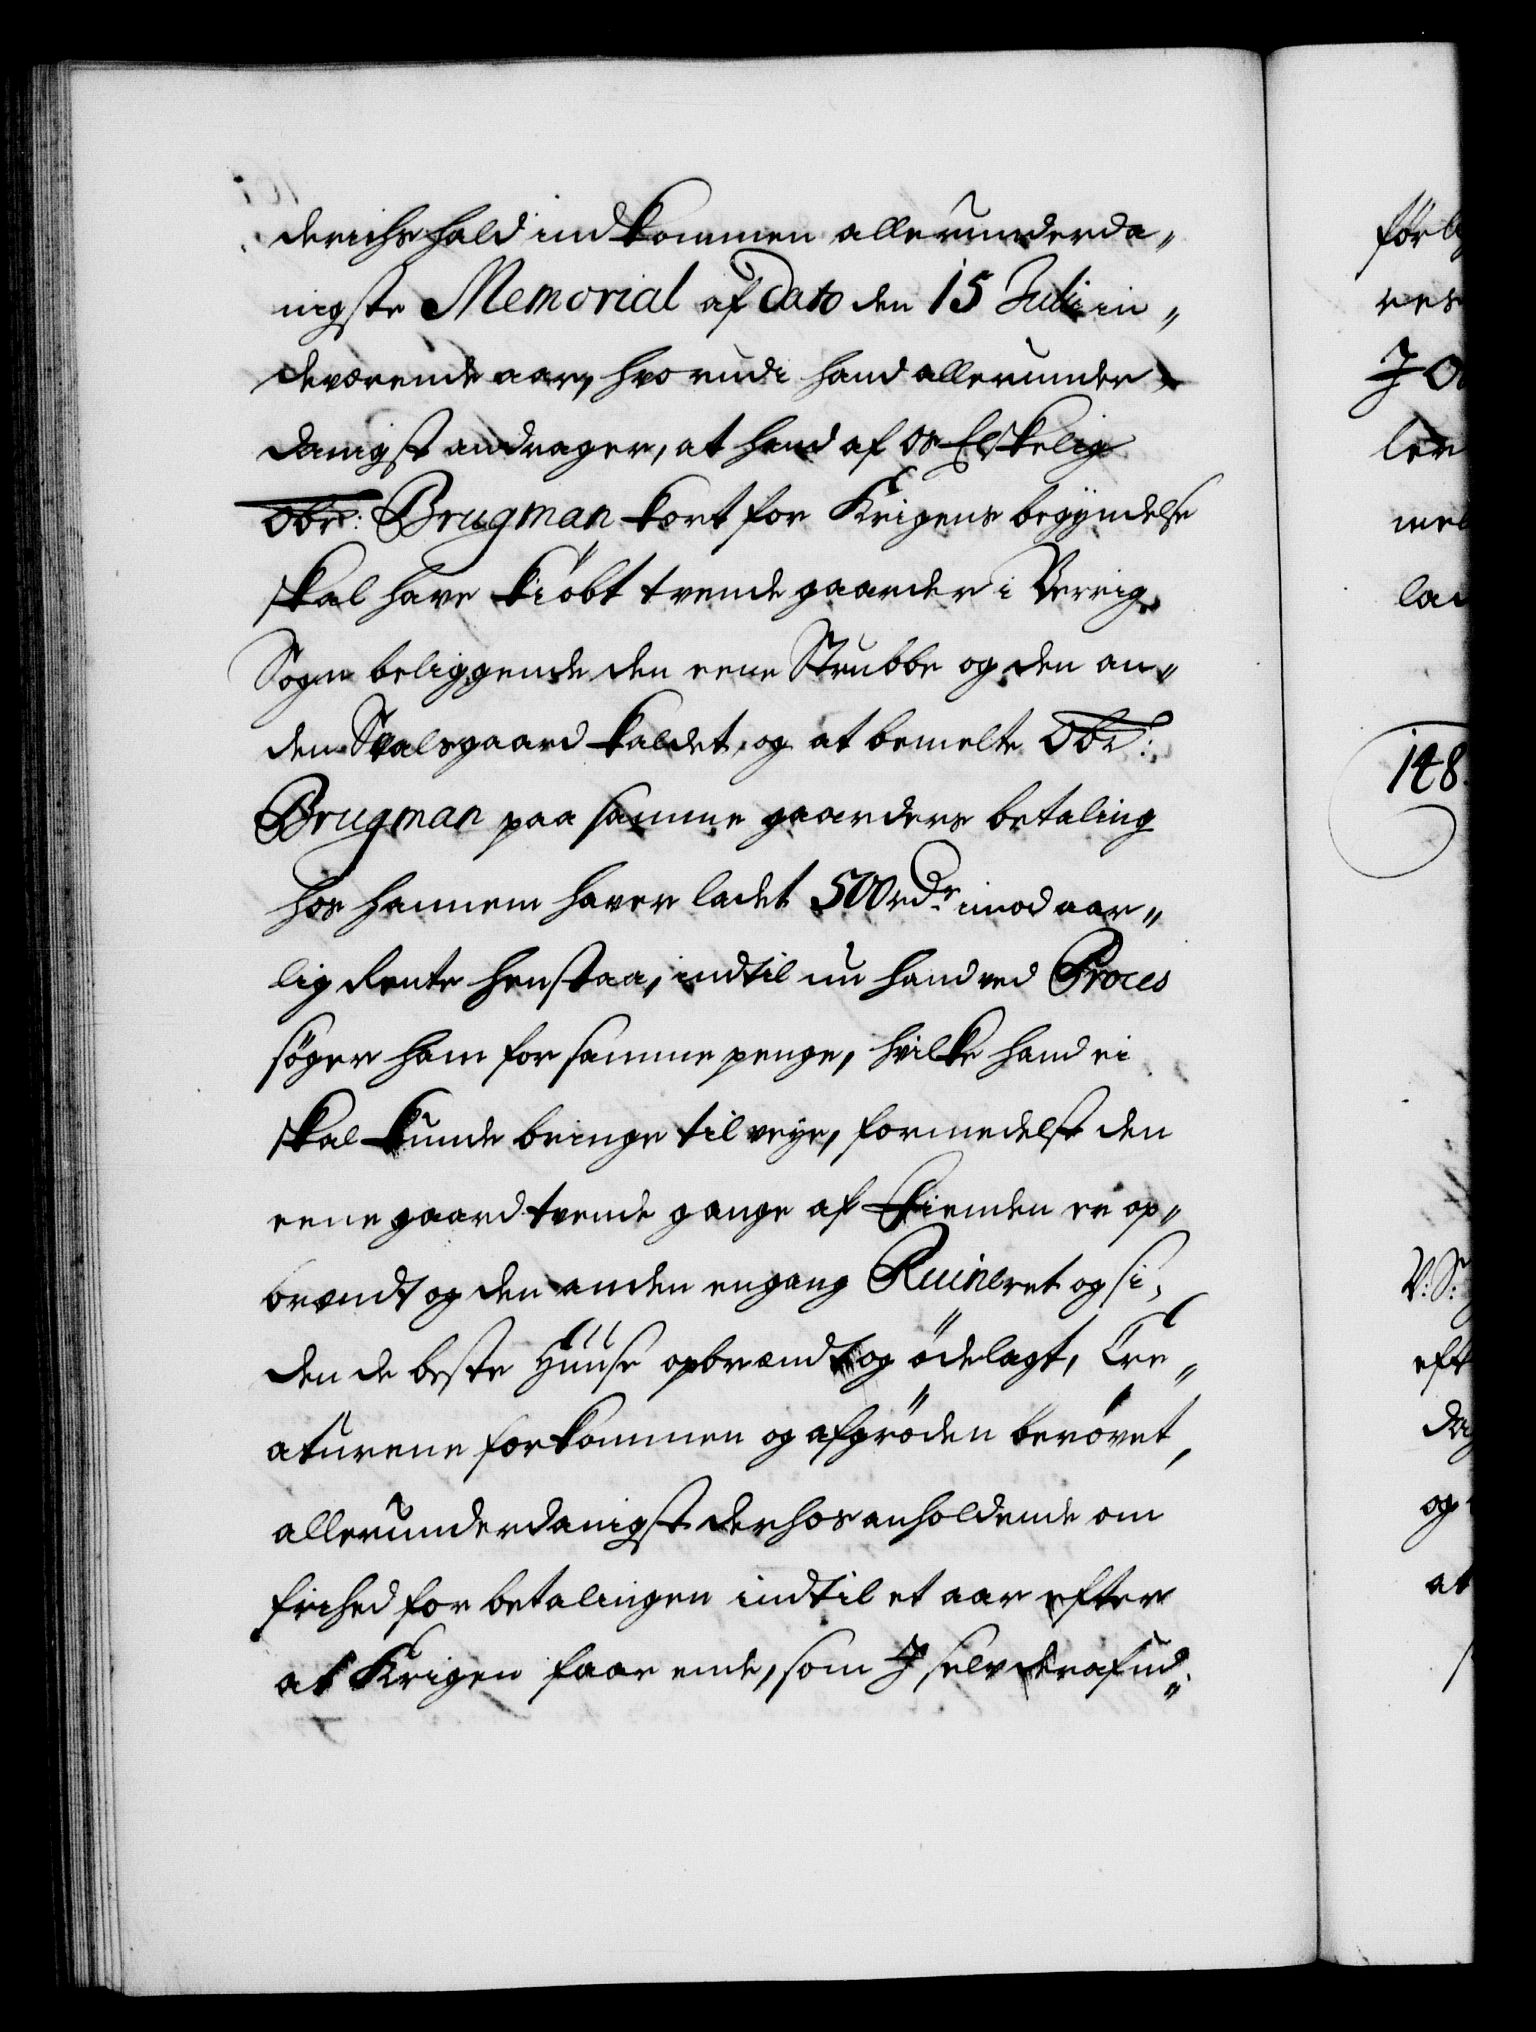 derichshald indkommen allerunderda„
nigste Memorial af Dato den 15 Julii in„
deværende aar, hvorudi hand allerunder„
danigst andrager, at hand af os Elskelig
Obr: Brugman kort for Krigens begyndelse
skal have kiöbt tvende gaarder i Verrig
Sogn beliggende den eene Strubbe og den an„
den Skalsgaard kaldet, og at bemelte Obr:
Brugman paa samme gaarders betaling
hos hannem haver ladet 500 rdr imod aar„
lig Rente henstaa, indtil nu hand ved Proces
söger ham for samme penge, hvilke hand ei
skal kunde bringe til veye, formedelst den
eene gaard tvende gange af Fienden er op„
brændt og den anden engang Ruineret og si„
den de beste Huuse opbrændt og ödelagt, Cre„
aturene forkommen og afgröden berövet,
allerunderdanigst derhos anholdende om
frihed for betalingen indtil et aar efter
at Krigen faar ende, som I selv deraf ud„
148.
V: S:
eft
dag
og
at